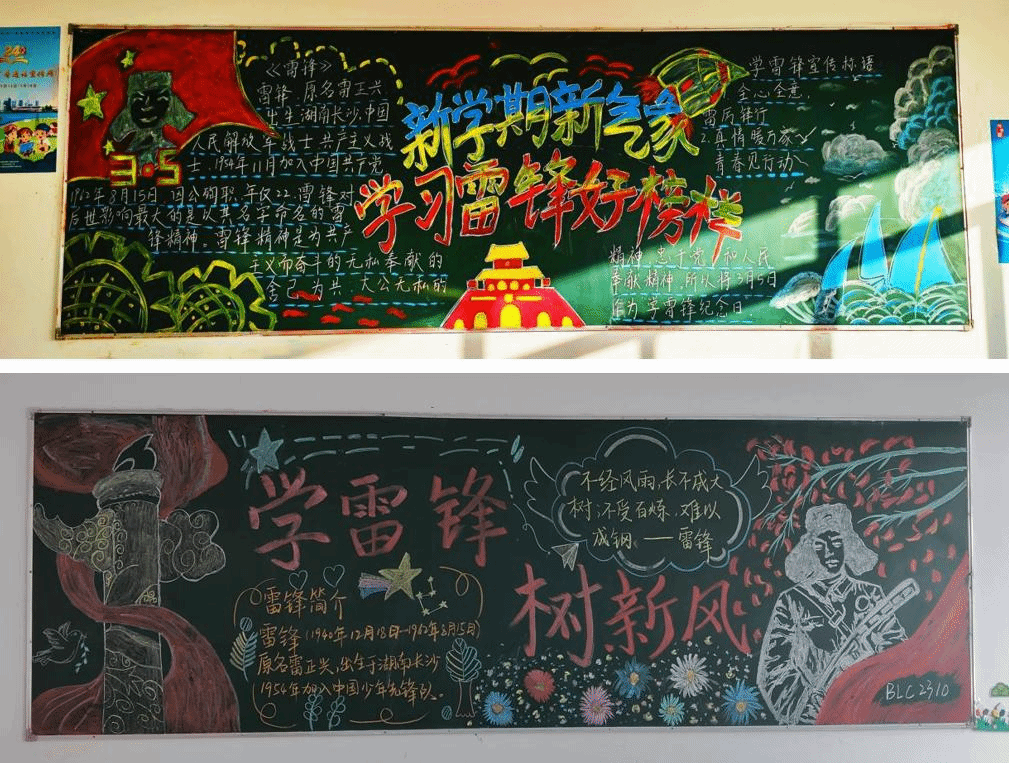 《雷锋》
雷锋，原名雷正兴，
出生湖南长沙，中国
人民解放军战士共产主义战
士，1954年11月加入中国共产党，
1962年8月15日，因公殉职，年仅22，雷锋对
后世影响最大的是以其名字命名的雷
锋精神。雷锋精神是为共产
主义而奋斗的无私奉献的
舍己为共，大公无私的
3·5
新学期新气象
学习雷锋好榜样
学雷锋宣传标语
全心全意，
雷厉锋行
2.真情暖万家，
青春见行动
精神，忠于党，和人民
奉献精神，所以将3月5日
作为学雷锋纪念日。
24
学雷锋
树新风
不经风雨，长不成大
树；不受百炼，难以
成钢。——雷锋
雷锋简介
雷锋（1940年12月18日—1962年8月15日）
原名雷正兴，出生于湖南长沙
1954年加入中国少年先锋队。
BLC2310